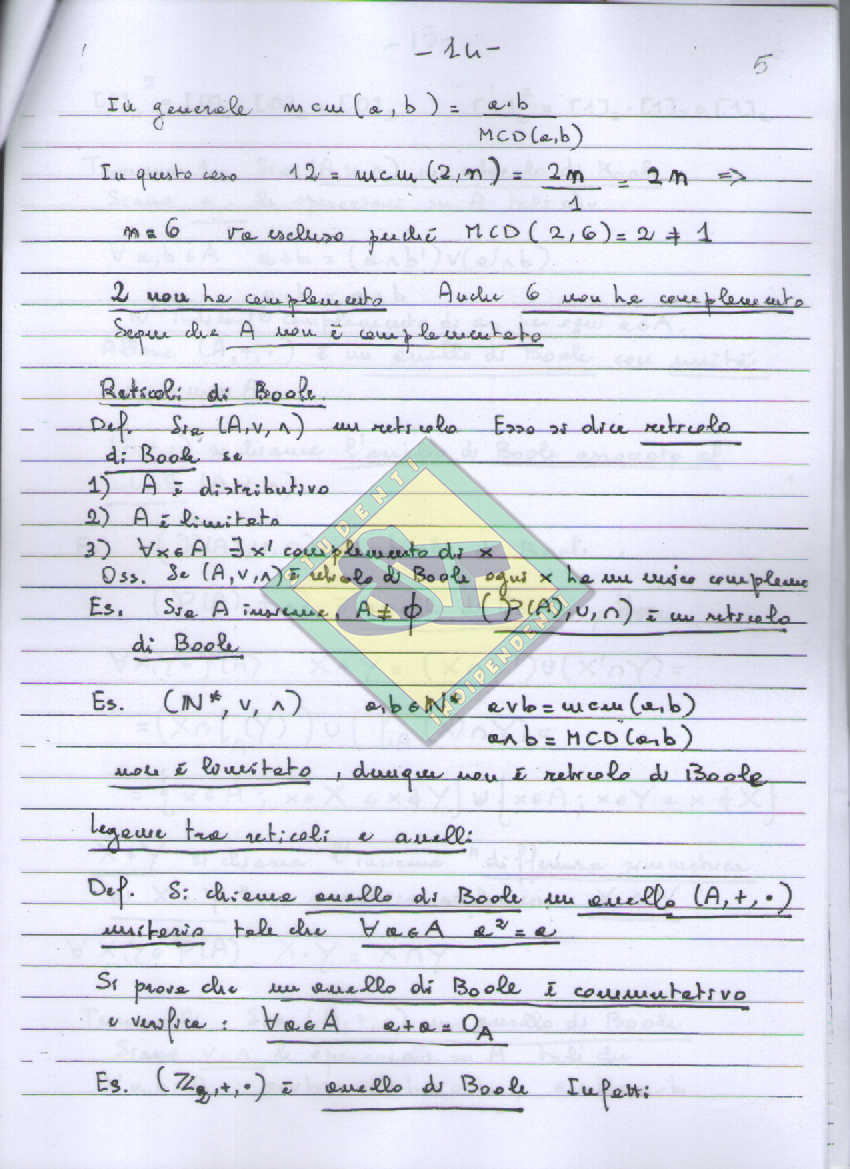 -14-
5
In generale mcm(a,b) = a·b / MCD(a,b)
In questo caso 12 = mcm(2,n) = 2n / 1 = 2n =>
n=6 va escluso perché MCD(2,6) = 2 ≠ 1
2 non ha complemento Anche 6 non ha complemento
Segue che A non è complementato
Reticoli di Boole.
Def. Sia (A,∨,∧) un reticolo Esso si dice reticolo
di Boole se
1) A è distributivo
2) A è limitato
3) ∀x∈A ∃x' complemento di x
Oss. Se (A,∨,∧) è reticolo di Boole ogni x ha un unico compleme
Es. Sia A insieme, A≠ϕ (P(A),∪,∩) è un reticolo
di Boole
Es. (N*,∨,∧) a,b∈N* a∨b=mcm(a,b)
a∧b=MCD(a,b)
non è limitato, dunque non è reticolo di Boole
Legame tra reticoli e anelli:
Def. Si chiama anello di Boole un anello (A,+,·)
unitario tale che ∀a∈A a²=a
Si prova che un anello di Boole è commutativo
e verifica: ∀a∈A a+a=0_A
Es. (Z₂,+,·) è anello di Boole Infatti
STUDENTI
INDIPENDENTI